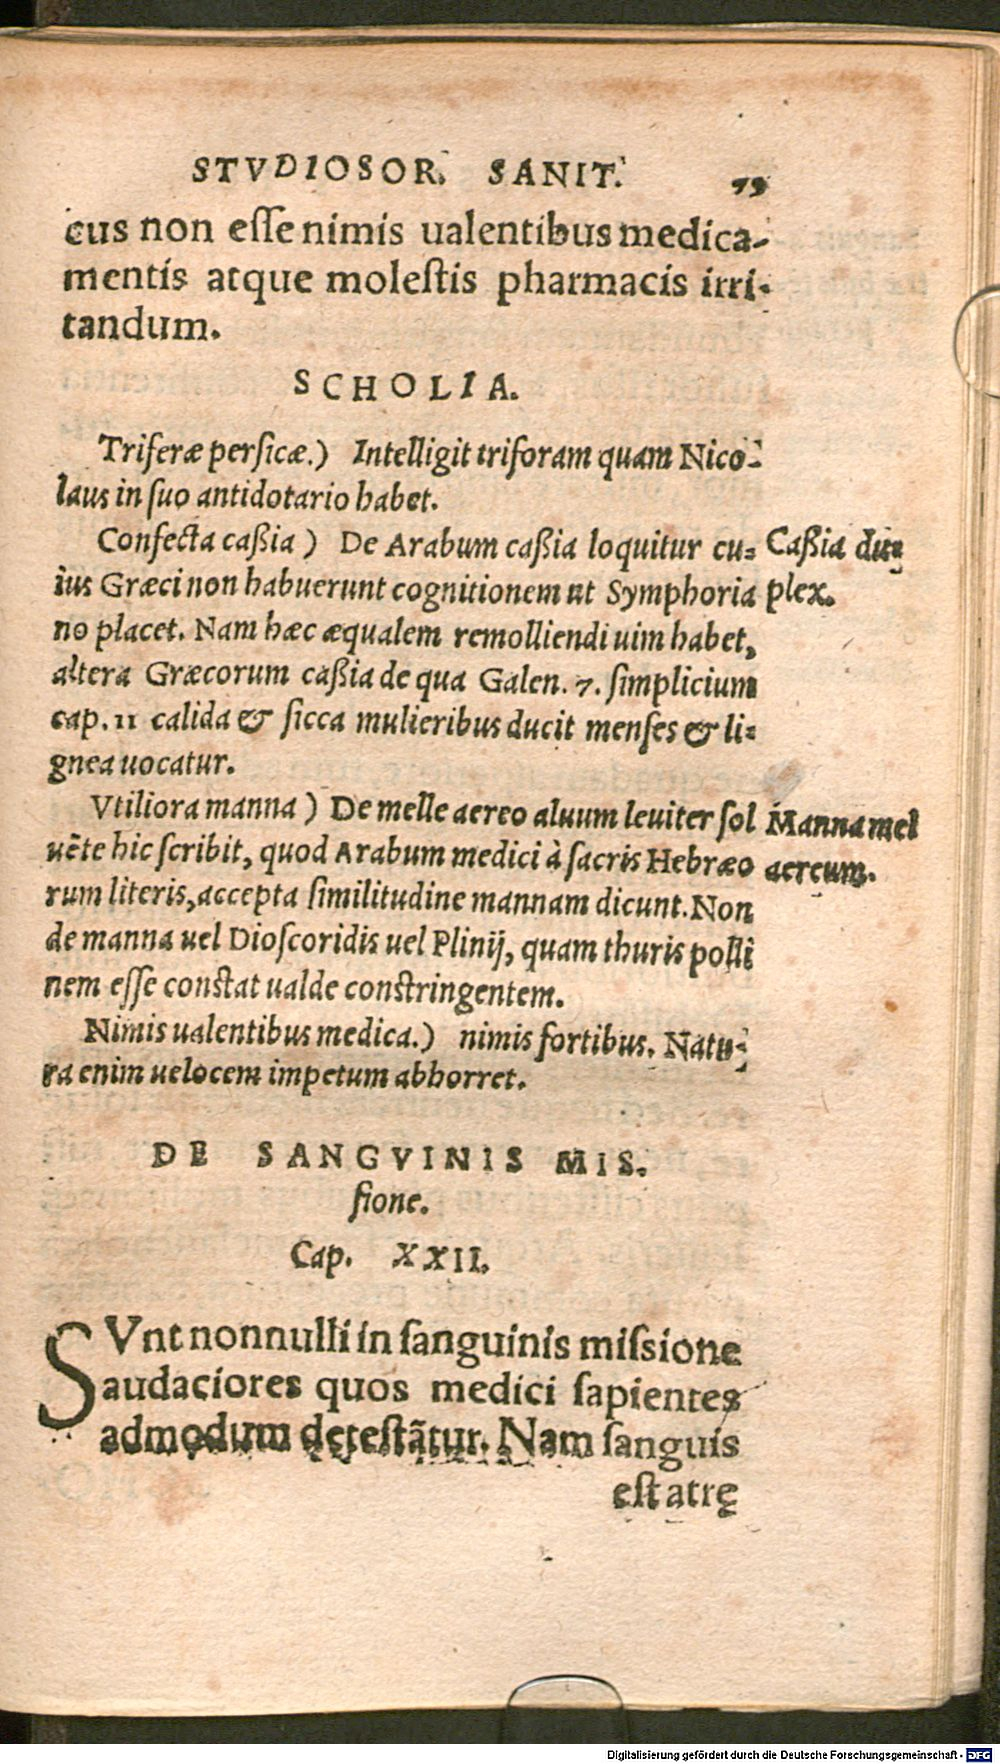 STVDIOSOR. SANIT. 79
cus non eſſe nimis ualentibus medica-
mentis atque moleſtis pharmacis irri-
tandum.
SCHOLIA.
Triferæ perſicæ.) Intelligit triforam quam Nico-
laus in ſuo antidotario habet.
Confecta caßia) De Arabum caßia loquitur cu=
ius Græci non habuerunt cognitionem ut Symphoria
no placet. Nam hæc æqualem remolliendi uim habet,
altera Græcorum caßia de qua Galen. 7. ſimplicium
cap. 11 calida & ſicca mulieribus ducit menſes & li=
gnea uocatur.
Caßia du=
plex.
Vtiliora manna) De melle aereo aluum leuiter ſol
uẽte hic ſcribit, quod Arabum medici à ſacris Hebræo
rum literis, accepta ſimilitudine mannam dicunt. Non
de manna uel Dioſcoridis uel Plinij, quam thuris polli
nem eſſe conſtat ualde conſtringentem.
Manna mel
aereum.
Nimis ualentibus medica.) nimis fortibus. Natu-
ra enim uelocem impetum abhorret.
DE SANGVINIS MIS.
ſione.
Cap. XXII.
SVnt nonnulli in ſanguinis miſsione
audaciores quos medici ſapientes
admodum deteſtãtur. Nam ſanguis
eſt atrę
Digitalisierung gefördert durch die Deutsche Forschungsgemeinschaft - DFG